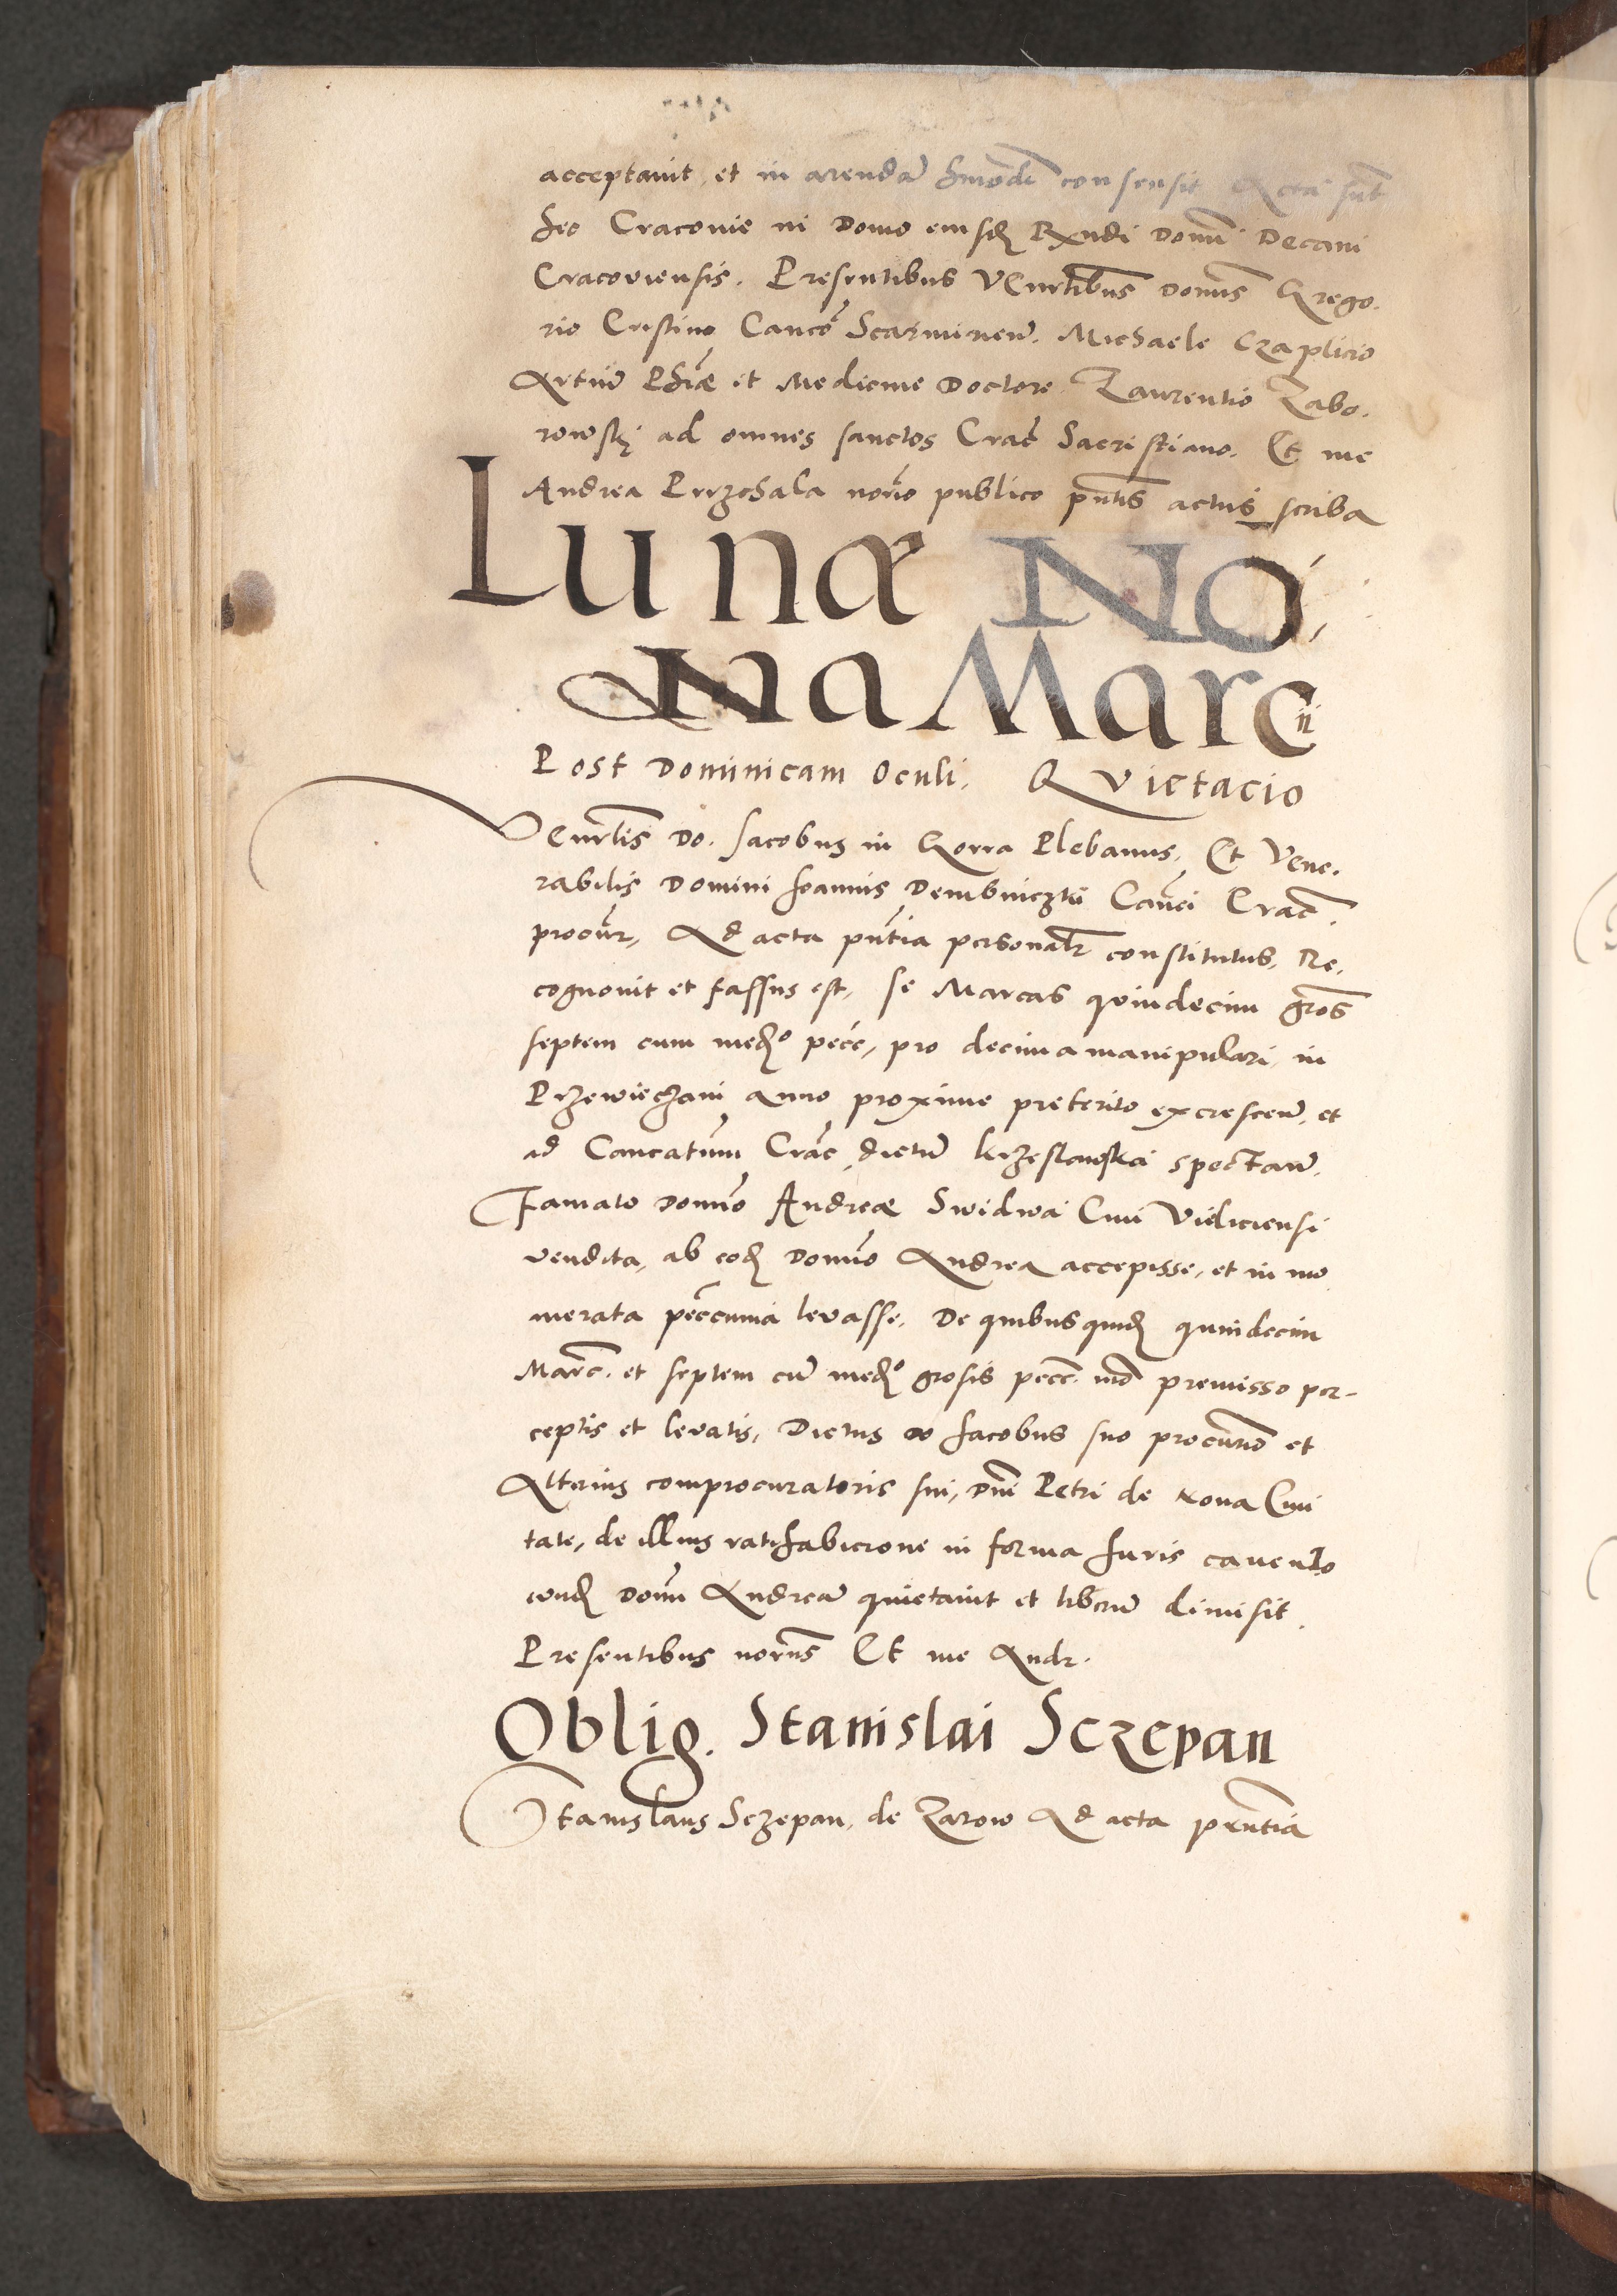 acceptauit, et in arendā hmōdi consensit Acta sūt
hec Cracouie in Domo eiusdē Rxndi Domī Decani
Cracouiensis. Presentibus VEnrlibus Domīs Grego.
rio Cristino Cancō Scarmirien̄. Michaele Czaplicio
Artiū Phīæ et Medicine Doctore Laurentio Zabo.
rowskj ad omnes sanctos Crac̄ Sacristiano. Et me
Andrea Przechala nor̄io publico pn̄tis actus scriba
Lunæ NO,
Na Marcii
Post Dominicam Oculi. QVietacio
VEnrlis Do. Jacobus in Gorra Plebanus, Et Vene.
rabilis Domini Joannis Dembinczkii Can̄ci Crac̄.
procur̄, Ad acta pn̄tia personalr̄ constitutus, Re.
cognouit et fassus est, se Marcas quindecim gros̄
septem cum med̄o pecc̄, pro decima manipulari in
Przewieczani anno proxime preterito excrescen̄. et
ad Cancatum Crac̄ dictū krzeslawska spectan̄.
Famato Domīno Andreæ Swidwa Ciui Vieliciensi
vendita, ab eod̄ Domīno Andrea accepisse, et in nu
merata peccunia leuasse. De quibusquid̄ quindecim
Marc̄. et septem cū med̄o grosis pecc̄. mō premisso per-
ceptis et leuatis, Dictus Do Jacobus suo procurīo et
Alterius comprocuratoris sui, Dnī Petri de Noua Ciui
tate, de illius ratihabicione in forma Juris cauendo
eund̄ Domī Andreā quietauit et liberū dimisit.
Presentibus norīis Et me Andr.
Oblig. Stanislai Sczepan
Stanislaus Sczepan, de Zarow Ad acta prn̄tia